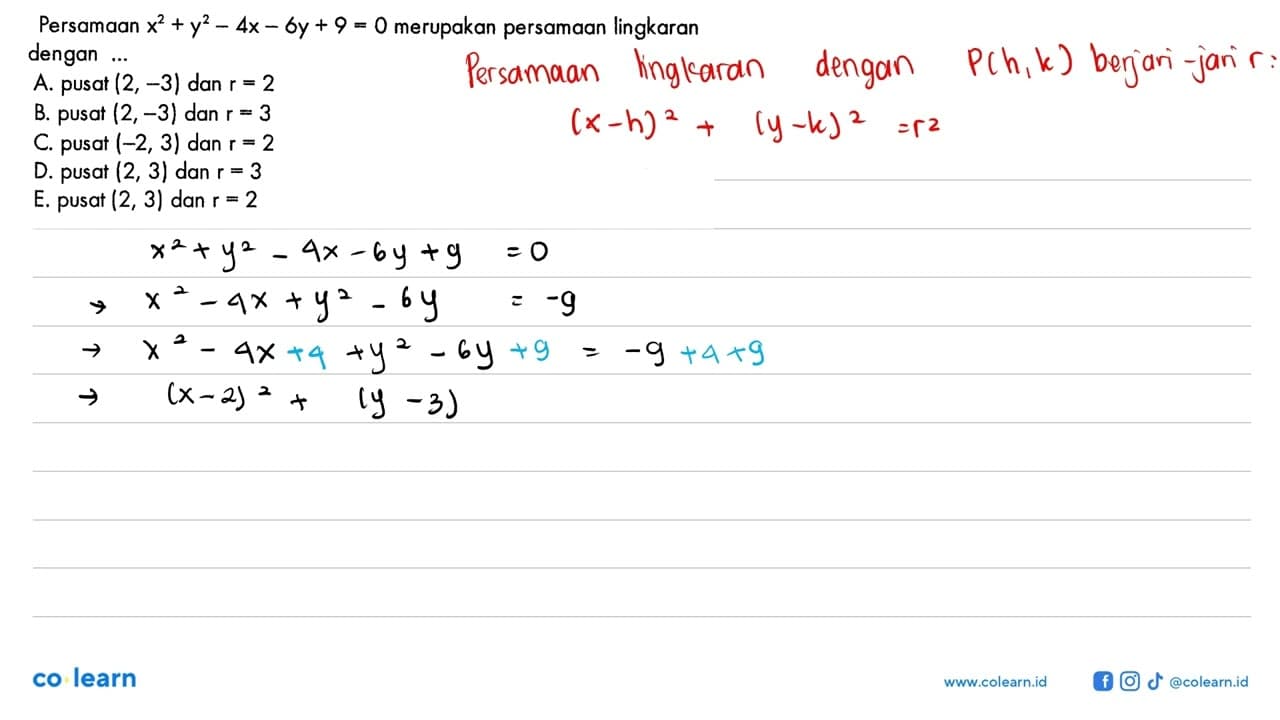 Persamaan x² + y² – 4x – 6y + 9 = 0 merupakan persamaan lingkaran
dengan ...
A. pusat (2, –3) dan r = 2
B. pusat (2, –3) dan r = 3
C. pusat (–2, 3) dan r = 2
D. pusat (2, 3) dan r = 3
E. pusat (2, 3) dan r = 2
Persamaan lingkaran dengan P(h, k) berjari-jari r :
(x-h)² + (y-k)² = r²
x² + y² - 4x - 6y + 9 = 0
→ x² - 4x + y² - 6y = -9
→ x² - 4x + 4 + y² - 6y + 9 = -9 + 4 + 9
→ (x-2)² + (y-3)
co learn
www.colearn.id
@colearn.id